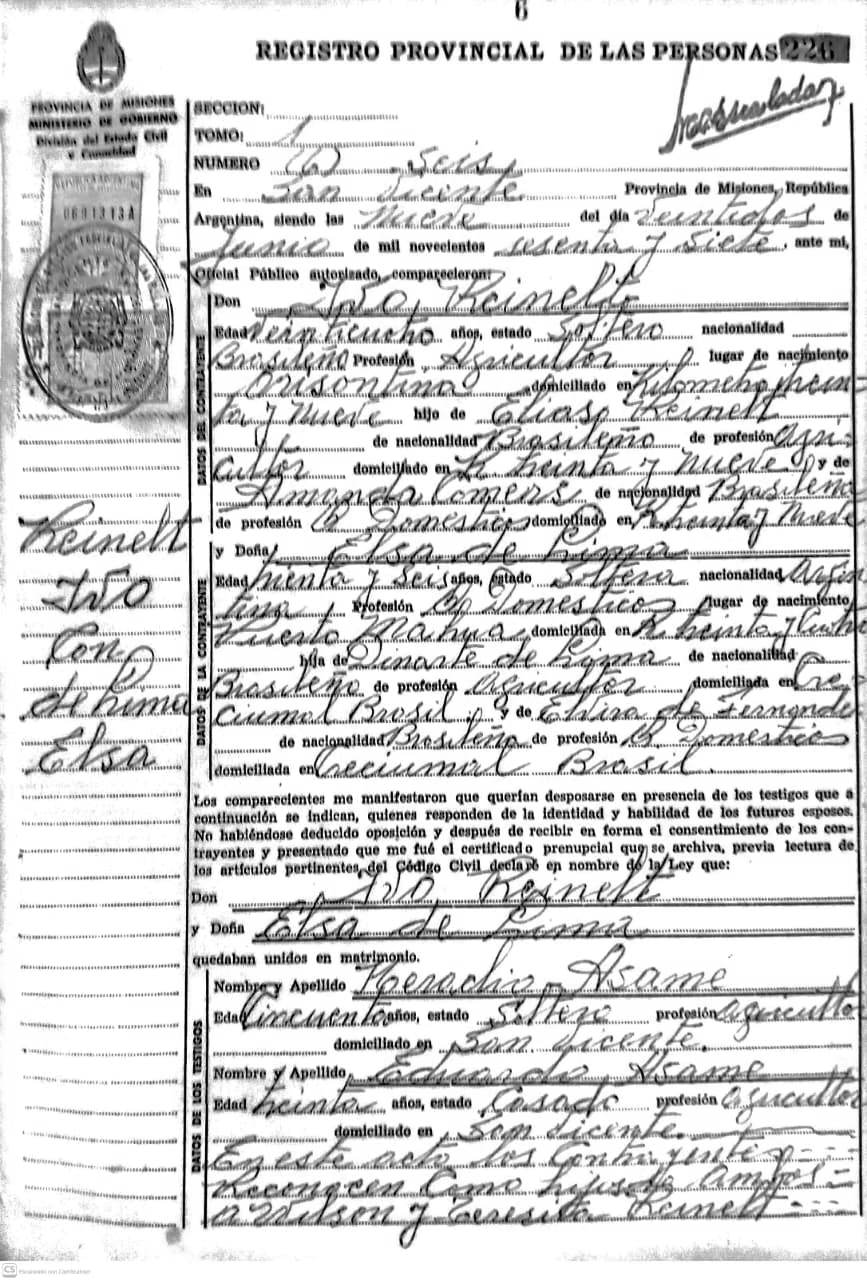 6
REGISTRO PROVINCIAL DE LAS PERSONAS 226
PROVINCIA DE MISIONES
MINISTERIO DE GOBIERNO
División del Estado Civil
y Capacidad
SECCION:
TOMO: 1
NUMERO (6) Seis
En San Vicente Provincia de Misiones, República
Argentina, siendo las Nueve del día Veintidos de
Junio de mil novecientos sesenta y Siete, ante mi,
Oficial Público autorizado, comparecieron:
DATOS DEL CONTRAYENTE
Don Ivo Reinelt
Edad Veintiocho años, estado Soltero nacionalidad
Brasileño Profesión Agricultor lugar de nacimiento
domiciliado en Kilometro trein
ta y Nueve hijo de Reinelt
de nacionalidad Brasileño de profesión Agri-
cultor domiciliado en K. treinta y Nueve y de
Amanda de nacionalidad Brasileña
de profesión Q. Domesticos domiciliado en K. treinta y Nueve
DATOS DE LA CONTRAYENTE
y Doña Elsa de Lima
Edad treinta y Seis años, estado Soltera nacionalidad Argen
tina Profesión Q. Domesticos lugar de nacimiento
Puerto domiciliada en K. treinta y
hija de Dinarte de Lima de nacionalidad
Brasileño de profesión Agricultor domiciliada en Cre-
ciumal Brasil y de Elvira de Fernande
de nacionalidad Brasileña de profesión Q. Domesticos
domiciliada en Creciumal Brasil.
Reinelt
Ivo
Con
de Lima
Elsa
Los comparecientes me manifestaron que querían desposarse en presencia de los testigos que a
continuación se indican, quienes responden de la identidad y habilidad de los futuros esposos.
No habiéndose deducido oposición y después de recibir en forma el consentimiento de los con-
trayentes y presentado que me fué el certificado prenupcial que se archiva, previa lectura de
los artículos pertinentes del Código Civil declaré en nombre de la Ley que:
Don Ivo Reinelt
y Doña Elsa de Lima
quedaban unidos en matrimonio.
DATOS DE LOS TESTIGOS
Nombre y Apellido Asame
Edad Cincuenta años, estado Soltero profesión Agricultor
domiciliado en San Vicente.
Nombre y Apellido Eduardo Asame
Edad treinta años, estado Casado profesión Agricultor
domiciliado en San Vicente.
En este acto los Contrayentes
Reconocen Como hijos de Ambos
a Wilson y Teresita Reinelt
CS Escaneado con CamScanner